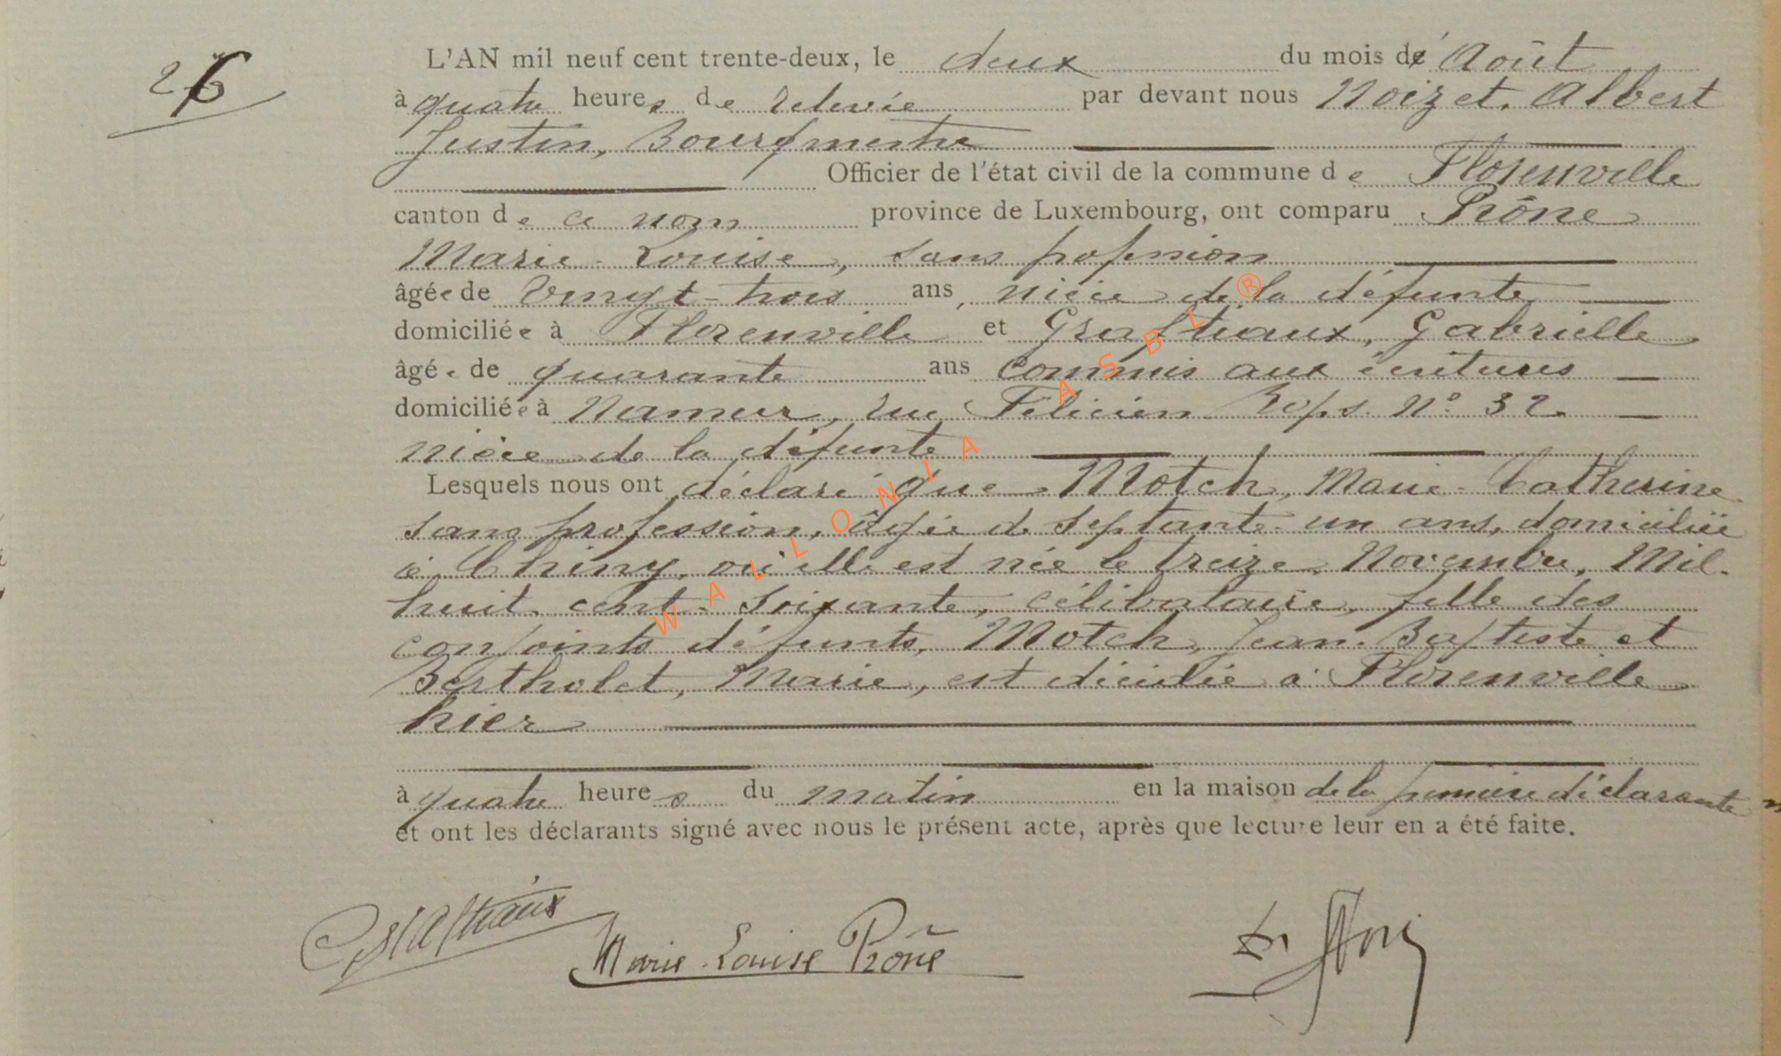 26
L'AN mil neuf cent trente-deux, le deux du mois d'Août
à quatre heures de relevée par devant nous Noizet, Albert
Justin, Bourgmestre
Officier de l'état civil de la commune de Florenville
canton de ce nom province de Luxembourg, ont comparu Prône
Marie-Louise, sans profession
âgée de vingt-trois ans, nièce de la défunte
domiciliée à Florenville et Graftiaux, Gabrielle
âgée de quarante ans commis aux écritures
domiciliée à Namur, rue Félicien Rops N° 32.
nièce de la défunte
Lesquels nous ont déclaré que Motch, Marie-Catherine
sans profession, âgée de septante-un ans, domiciliée
à Chiny, où elle est née le treize Novembre, Mil-
huit-cent-soixante, célibataire, fille des
conjoints défunts, Motch, Jean-Baptiste et
Bertholet, Marie, est décédée à Florenville
hier
à quatre heures du matin en la maison de la première déclarante
et ont les déclarants signé avec nous le présent acte, après que lecture leur en a été faite.
Graftiaux Marie-Louise Prône
WALLONIA ASBL ®